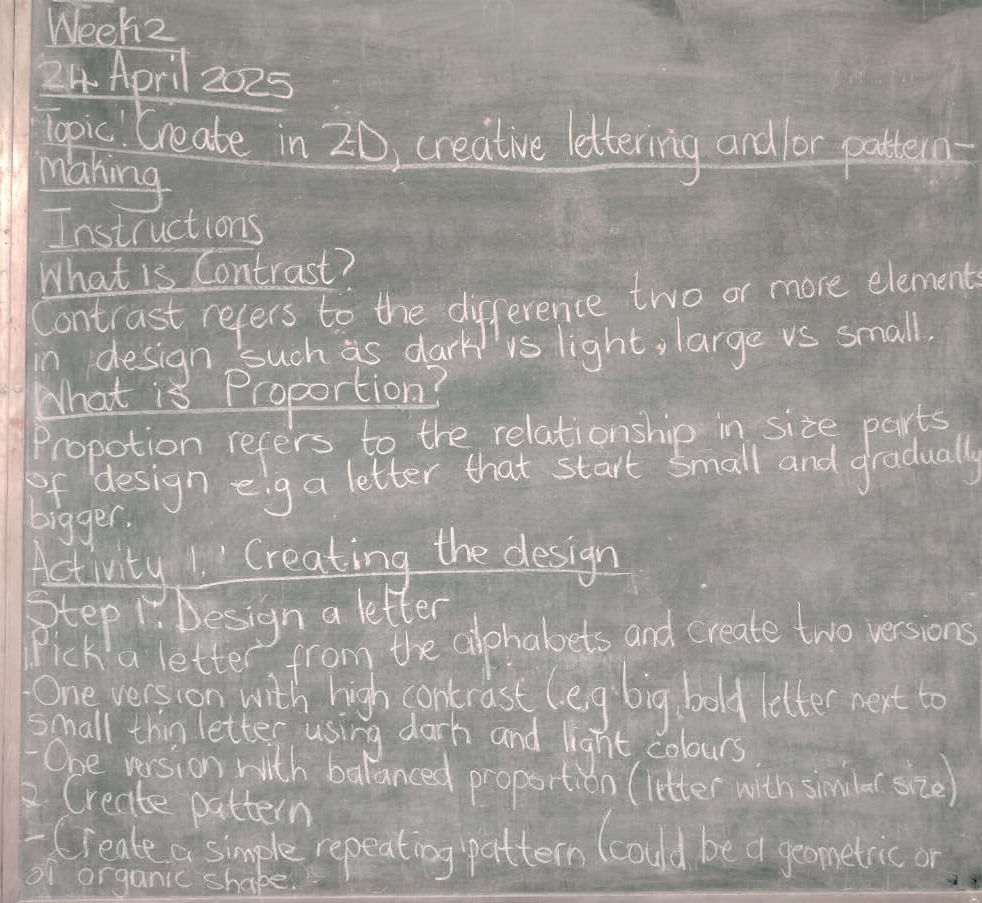 Week 2
24 April 2025
Topic: Create in 2D, creative lettering and/or pattern-
making
Instructions
What is Contrast?
Contrast refers to the difference two or more elements
in design such as dark vs light, large vs small.
What is Proportion?
Propotion refers to the relationship in size parts
of design e.g a letter that start small and gradually
bigger.
Activity 1: Creating the design
Step 1: Design a letter
1. Pick a letter from the alphabets and create two versions
- One version with high contrast (e.g big, bold letter next to
small thin letter using dark and light colours
- One version with balanced proportion (letter with similar size)
2 Create pattern
- Create a simple repeating pattern (could be a geometric or
or organic shape.